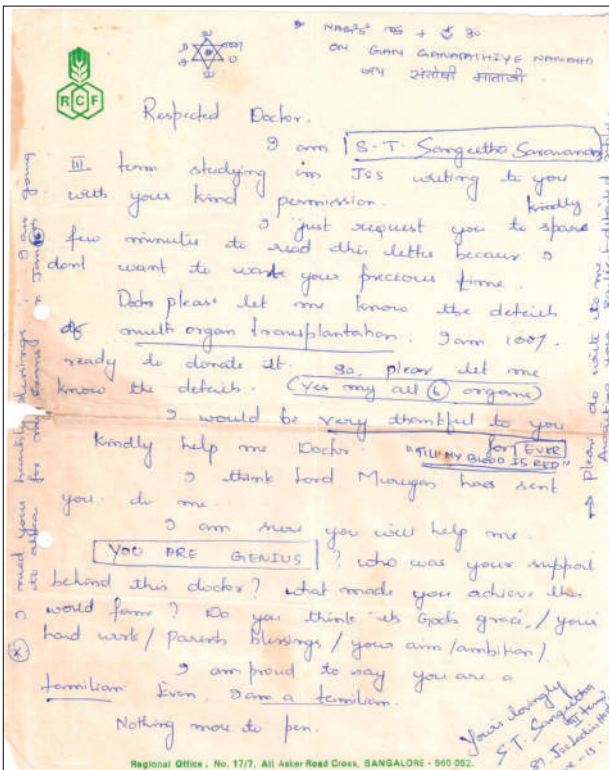 RCF
ॐ
OM GAM GANAPATHIYE NAMAHA
जय संतोषी माताजी
Respected Doctor.
I am S.T. Sangeetha Saravanan
III term studying in Jss writing to you
with your kind permission. kindly
I just request you to spare
few minutes to read this letter because I
dont want to waste your precious time.
Doctor please let me know the details
of multi organ transplantation. I am 100%.
ready to donate it. So, please let me
know the details. (Yes my all 6 organs)
I would be very thankful to you
for EVER
Kindly help me Doctor. "TILL MY BLOOD IS RED"
I think Lord Murugan has sent
you to me.
I am sure you will help me.
YOU ARE GENIUS ? who was your support
behind this doctor? what made you achieve this
world fame? Do you think its Gods grace/your
hard work/parents blessings/your aim/ambition/.
I am proud to say you are a
tamilian. Even, I am a tamilian.
Nothing more to pen.
Yours lovingly
S.T. Sangeetha
III term
I need your hearty blessings. I am going
to appear for my exams in June
Please do write to me
Regional Office : No. 17/7, Ali Asker Road Cross, BANGALORE - 560 052.